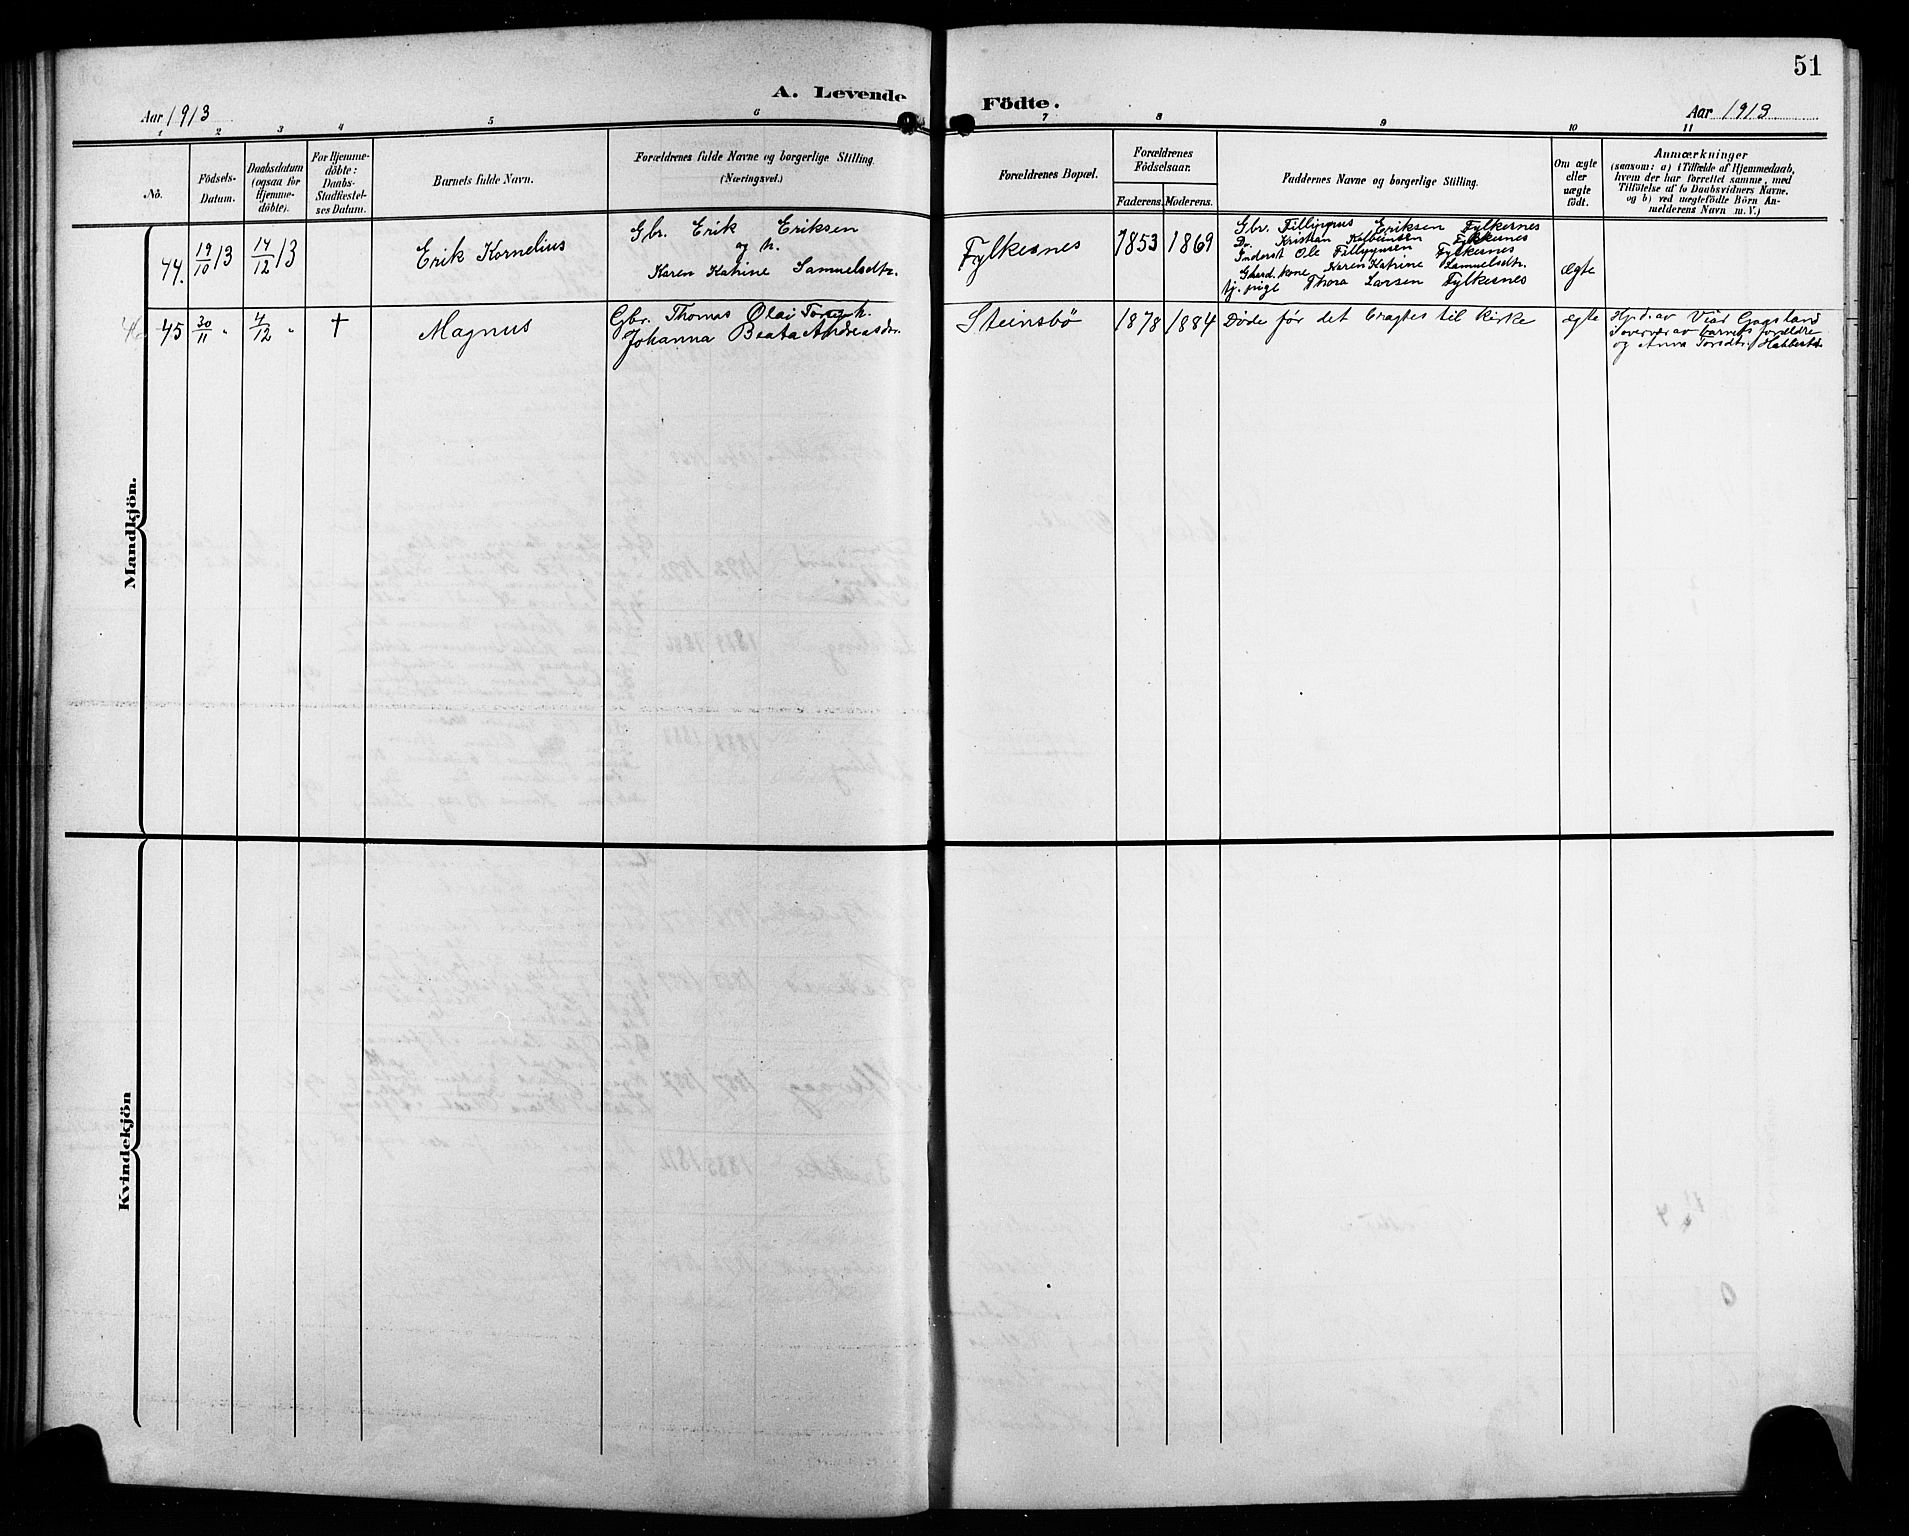 51
A. Levende Födte.
Aar 1913
Aar 1913
1 2 3 4 5 6 7 8 9 10 11
No.
Födsels-Datum.
Daabsdatum (ogsaa for Hjemme-döbte).
For Hjemme-döbte: Daabs-Stadfæstel-ses Datum.
Barnets fulde Navn.
Forældrenes fulde Navne og borgerlige Stilling.
(Næringsvei.)
Forældrenes Bopæl.
Forældrenes Födselsaar.
Faderens. Moderens.
Faddernes Navne og borgerlige Stilling.
Om ægte eller uægte födt.
Anmærkninger
(saasom: a) i Tilfælde af Hjemmedaab,
hvem der har forrettet samme, med
Tilföielse af to Daabsvidners Navne,
og b) ved uægtefödte Börn An-
melderens Navn m. V.)
Mandkjön.
44. 19/10 13 14/12 13
Erik Kornelius
Gbr. Erik Eriksen
og h.
Karen Katrine Samuelsdtr.
Fylkesnes
1853 1869
Gbr. Fillippus Eriksen Fylkesnes
Do. Kristian Kolbeinsen Fylkesnes
Inderst Ole Fillippusen Fylkesnes
Gbard. kone Karen Katrine Samuelsdtr.
tj. pige Thora Larsen Fylkesnes
ægte
46 45 30/11 " 4/12 " †
Magnus
Gbr. Thomas Olai
Johanna Beata Andreasdr.
Steinsbö
1878 1884
Döde för det bragtes til kirke
ægte
Hjd. av
Overvær av barnets foreldre
og Anna Torsdtr.
Kvindekjön